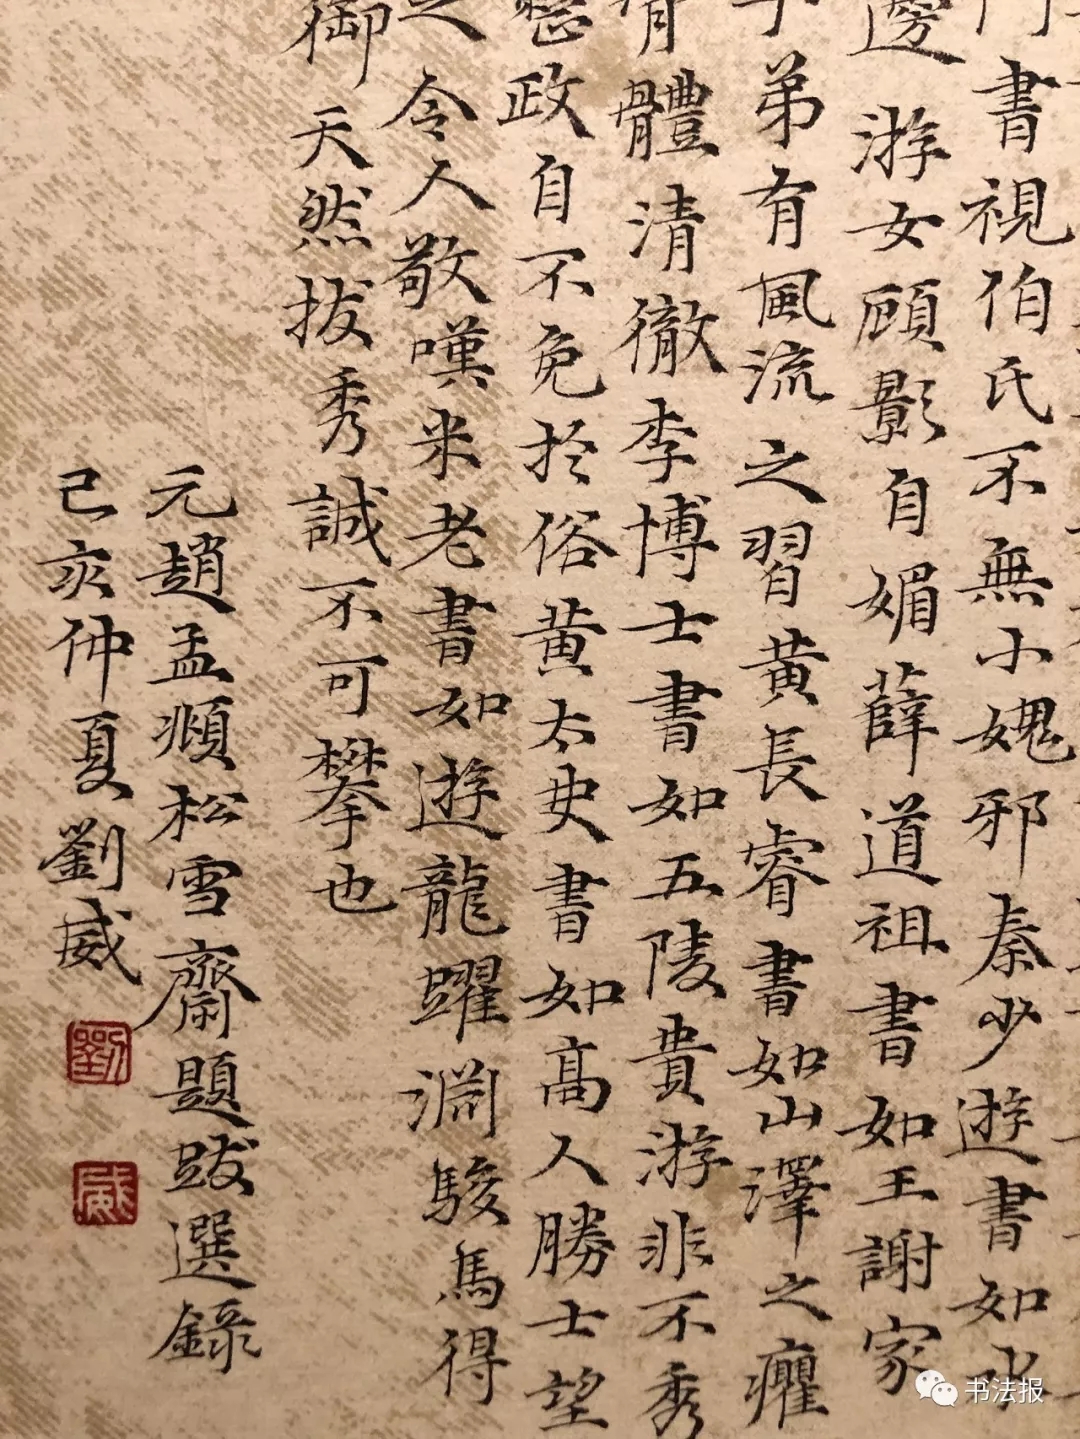 門書視伯氏不無小媿邪秦少遊書如水
邊游女顧影自媚薛道祖書如王謝家
子弟有風流之習黄長睿書如山澤之癯
骨體清徹李博士書如五陵貴游非不秀
整政自不免於俗黄太史書如高人勝士望
之令人敬嘆米老書如遊龍躍淵駿馬得
御天然拔秀誠不可攀也
元趙孟頫松雪齋題跋選錄
己亥仲夏劉威
劉
威
书法报